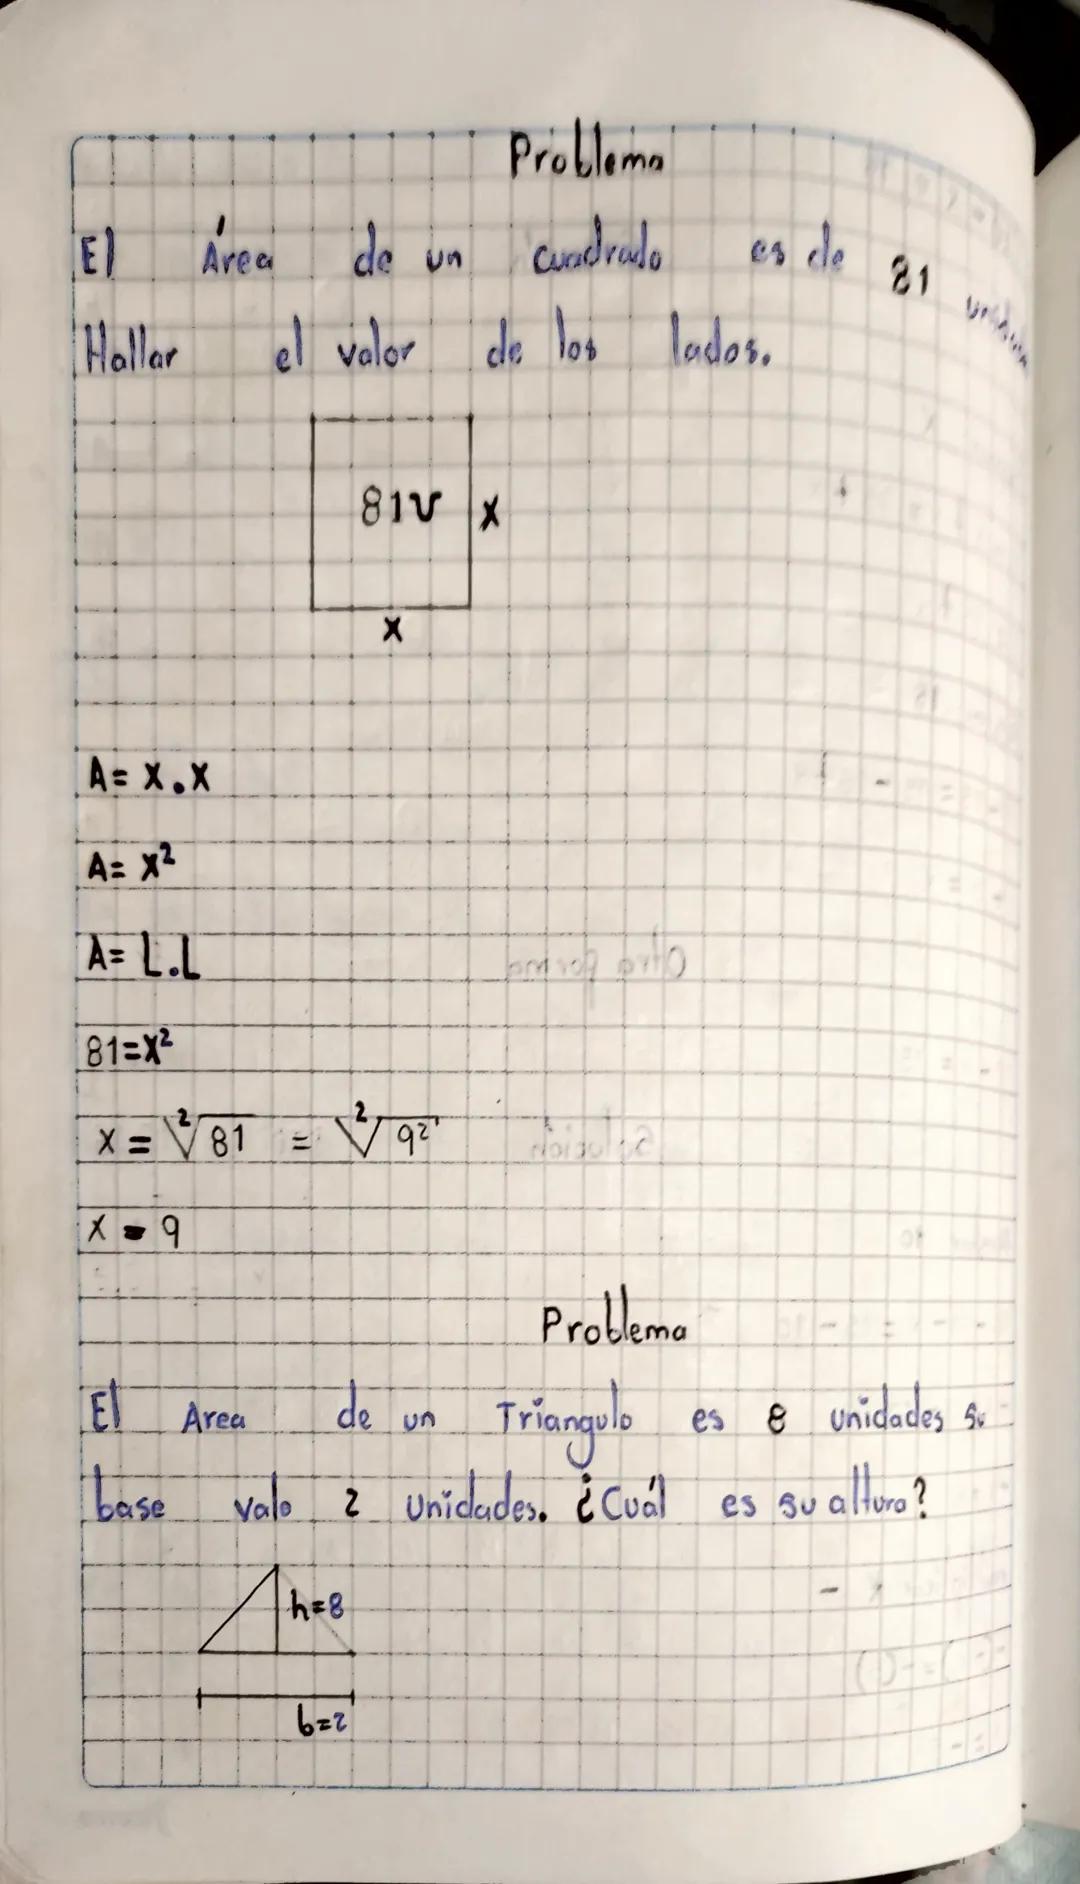 Problema
El Área de un cuadrado es de 81 unidades
Hallar el valor de los lados.
81u x
x
A= x.x
A= x²
A= L.L
81=x²
x = ²√81 = ²√9²
x = 9
Problema
El Area de un Triangulo es 8 unidades su
base vale 2 unidades. ¿Cuál es su altura?
h=8
b=2